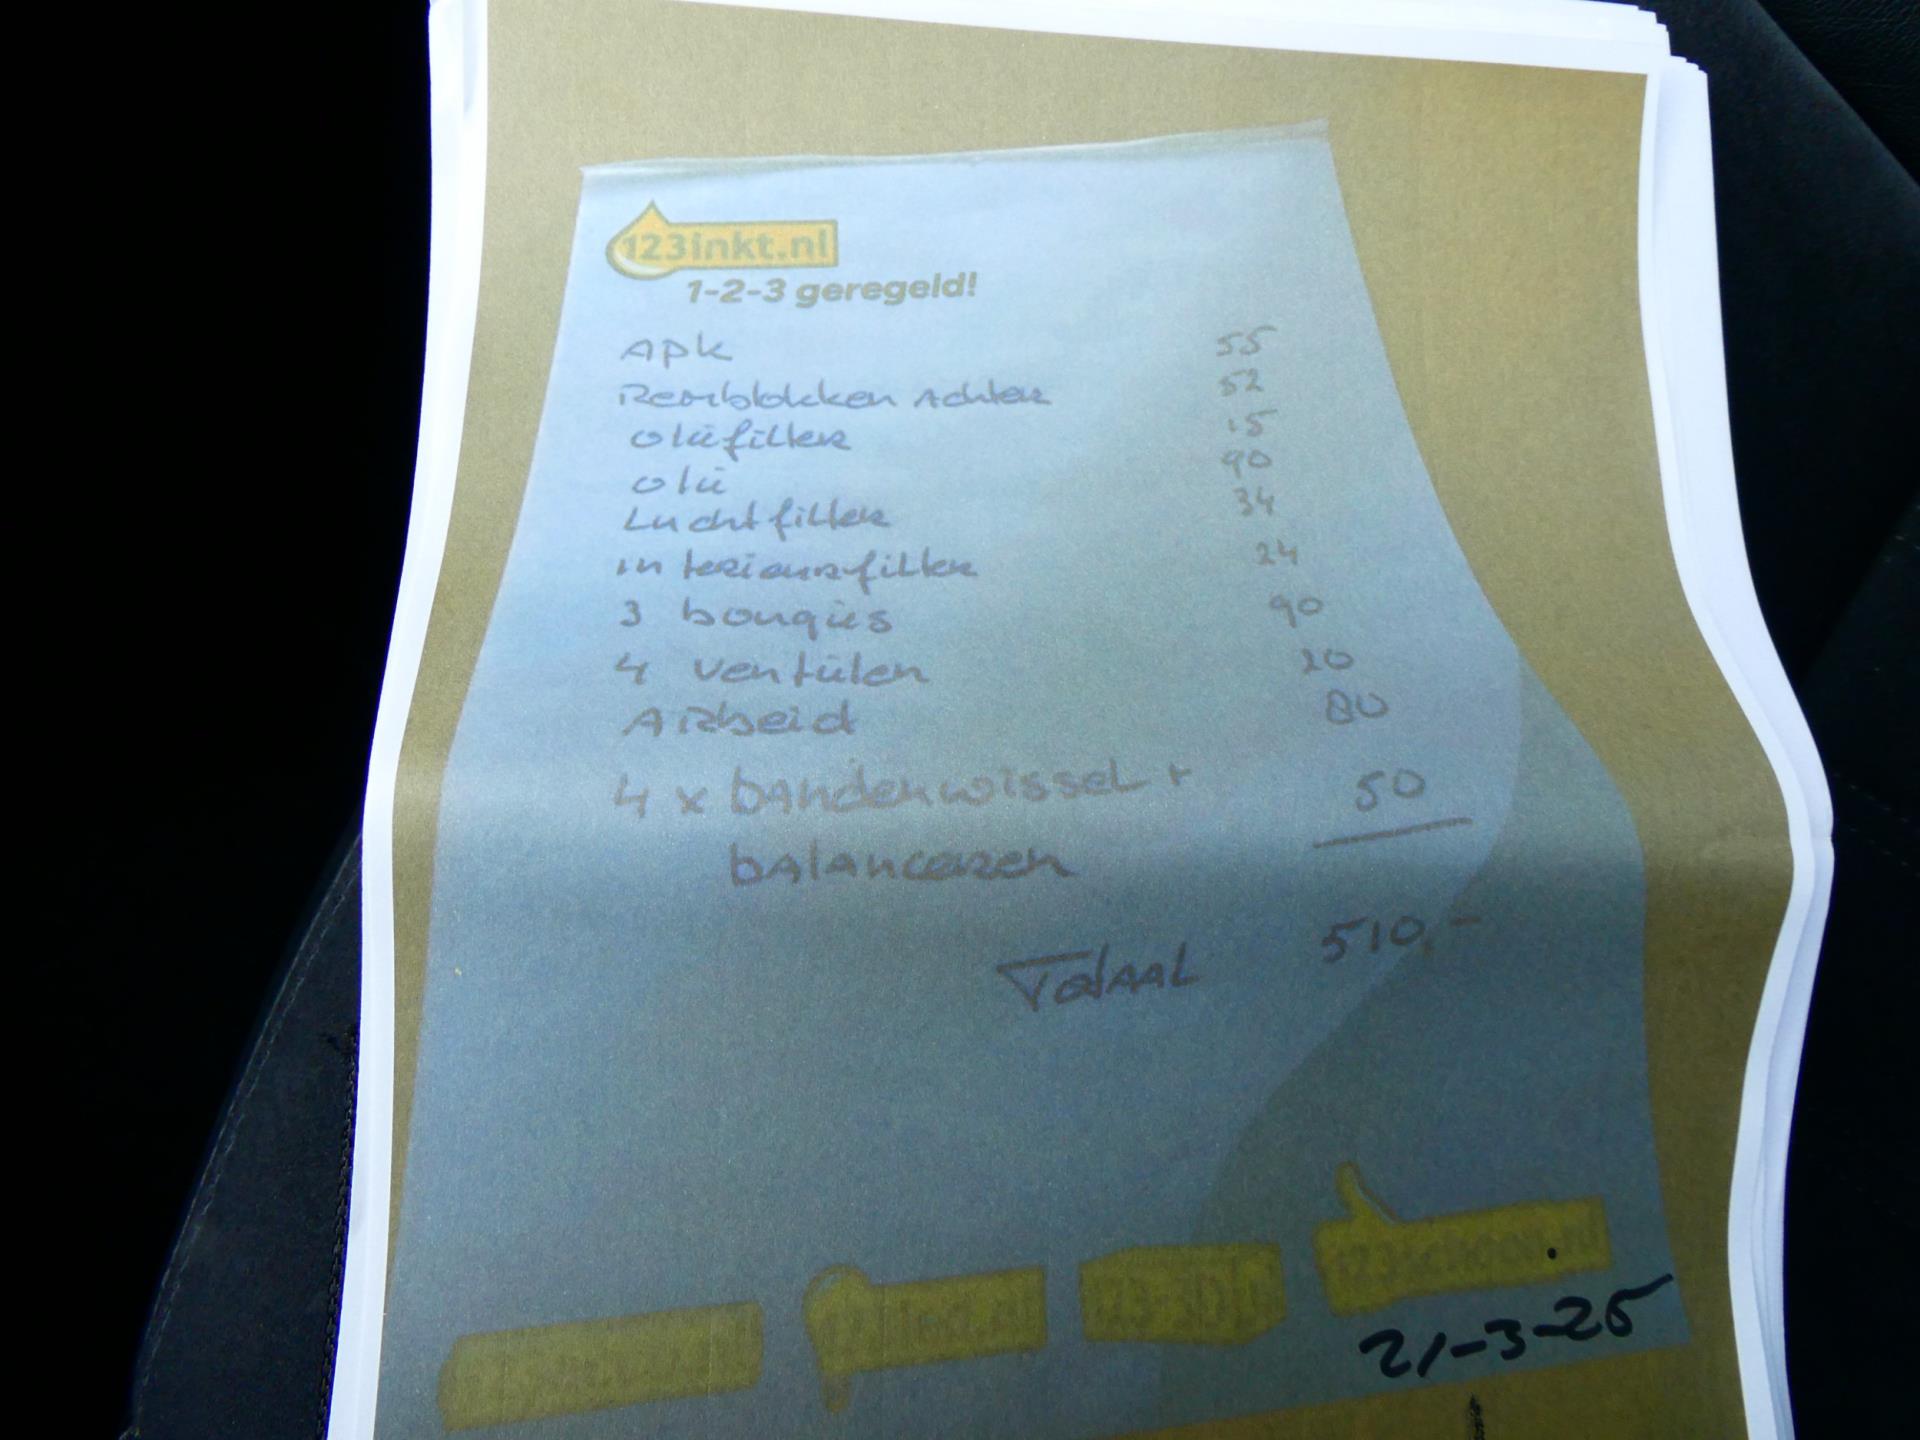 123inkt.nl
1-2-3 geregeld!
Apk 55
Remblokken Achter 52
oliefilter 15
olie 90
Luchtfilter 34
interieurfilter 24
3 bougies 90
4 ventielen 20
Arbeid 80
4 x bandenwissel + 50
balanceren
Totaal 510,-
123inkt.nl 123-3D.nl 123schoon.nl
21-3-25